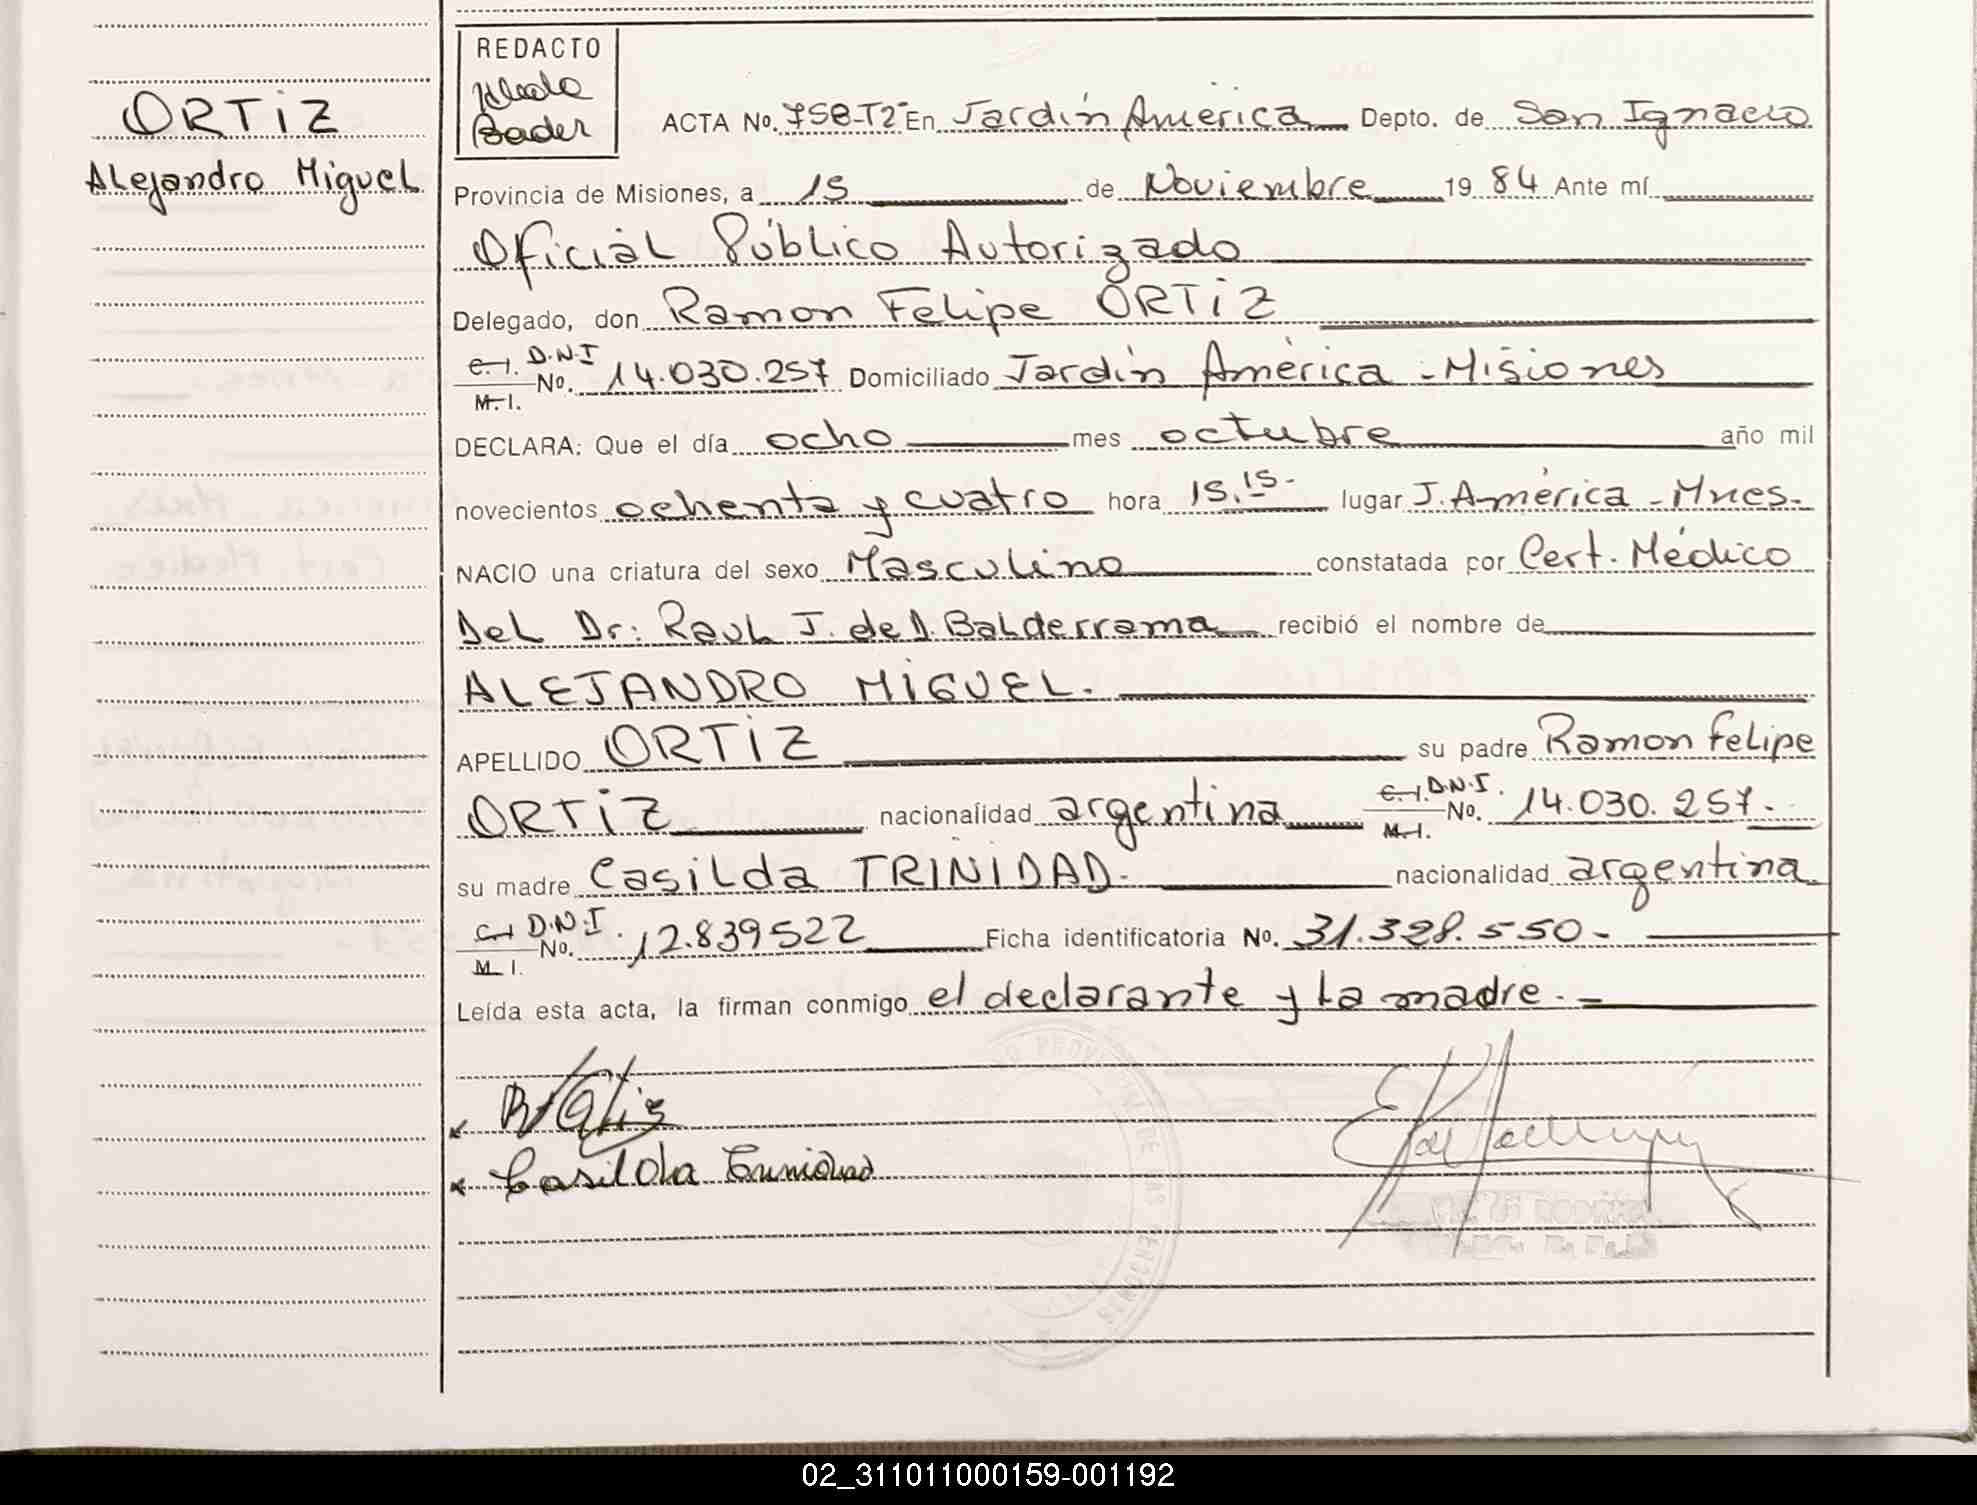 ORTiZ
Alejandro Miguel
REDACTO
Bader
ACTA No. 758-T2º En Jardín América Depto. de San Ignacio
Provincia de Misiones, a 15 de Noviembre 19 84 Ante mí
Oficial Público Autorizado
Delegado, don Ramon Felipe ORTiZ
C. I. D.N.I
No. 14.030.257 Domiciliado Jardín América - Misiones
M. I.
DECLARA: Que el día ocho mes octubre año mil
novecientos ochenta y cuatro hora 15.15- lugar J. América - Mnes.
NACIO una criatura del sexo Masculino constatada por Cert. Médico
Del Dr: Raul J. de D. Balderrama recibió el nombre de
ALEJANDRO MiGUEL.
APELLIDO ORTiZ su padre Ramon Felipe
ORTiZ nacionalidad argentina C. I. D.N.I. No. 14.030.257.-
M. I.
su madre Casilda TRiNiDAD.- nacionalidad argentina
C I D.N.I. No. 12.839522 Ficha identificatoria No. 31.328.550-
M I.
Leída esta acta, la firman conmigo el declarante y la madre.-
Casilda Trinidad
02_311011000159-001192